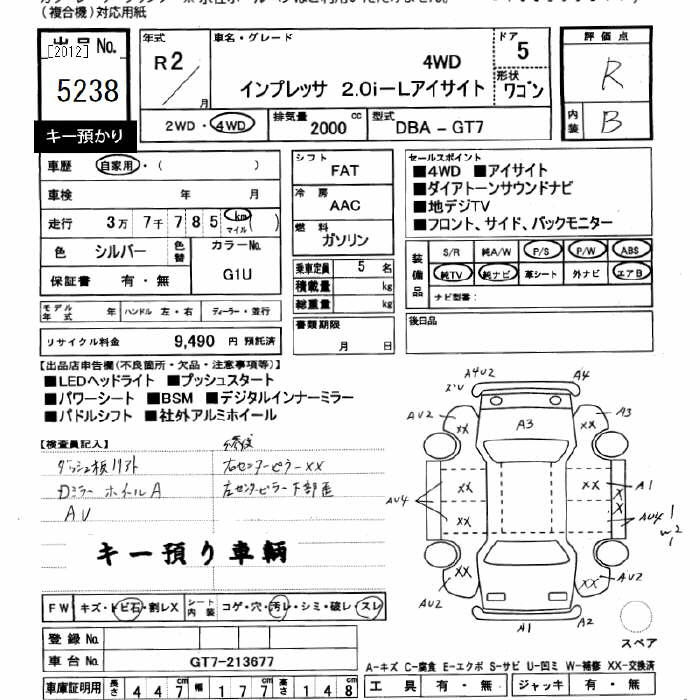 (複合機)対応用紙
出品No.
[2012]
5238
キー預かり
年式
R2/月
車名・グレード
4WD
インプレッサ 2.0i-Lアイサイト
ドア 5
形状 ワゴン
評価点
R
内装 B
2WD・4WD
排気量 2000 cc
型式 DBA - GT7
車歴 自家用・( )
車検 年 月
走行 3万 7千 7 8 5 km マイル ( )
色 シルバー 色替
カラーNo. G1U
保証書 有・無
シフト FAT
冷房 AAC
燃料 ガソリン
乗車定員 5 名
積載量 kg
総重量 kg
書類期限 月 日
セールスポイント
■4WD ■アイサイト
■ダイアトーンサウンドナビ
■地デジTV
■フロント、サイド、バックモニター
装備品 S/R 純A/W P/S P/W ABS
純TV 純ナビ 革シート 外ナビ エアB
ナビ型番:
後日品
モデル年式 年 ハンドル 左・右 ディーラー・並行
リサイクル料金 9,490 円 預託済
【出品店申告欄(不良箇所・欠品・注意事項等)】
■LEDヘッドライト ■プッシュスタート
■パワーシート ■BSM ■デジタルインナーミラー
■パドルシフト ■社外アルミホイール
【検査員記入】
修復
ダッシュ板リフト 右センターピラーXX
Dミラー ホイールA 左センターピラー下部歪
AU
キー預り車輌
A4U2 A4
AU2 XX A3 XX A3
XX XX A1
AU4 XX X X AU4 1
W2
XX XX
AU2 AU2
A1 A2
スペア
FW キズ・トビ石・割レX シート内装 コゲ・穴・汚レ・シミ・破レ・スレ
登録No.
車台No. GT7-213677
車庫証明用 長さ 4 4 7 幅 1 7 7 高さ 1 4 8
A-キズ C-腐食 E-エクボ S-サビ U-凹ミ W-補修 XX-交換済
工具 有・無 ジャッキ 有・無